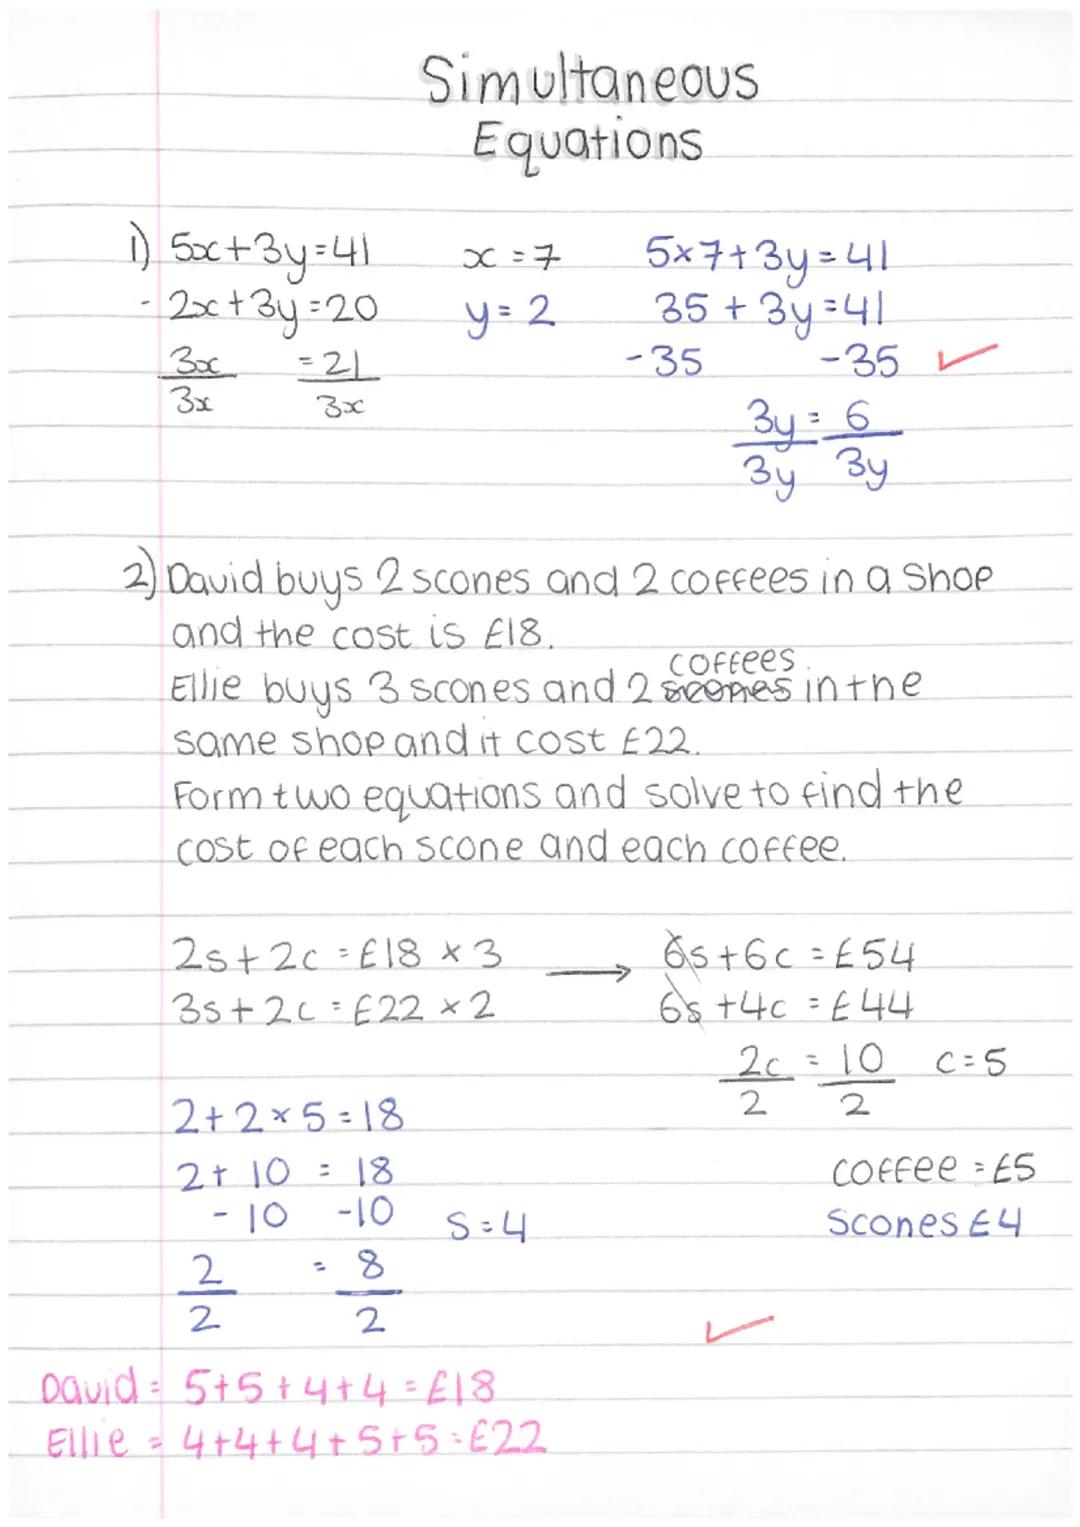 Simultaneous
Equations
1) 5x+3y=41 x=7 5×7+3y=41
- 2x+3y=20 y=2 35+3y=41
3x =21 -35 -35 ✓
3x 3x 3y=6
3y 3y
2) David buys 2 scones and 2 coffees in a shop
and the cost is £18.
coffees
Ellie buys 3 scones and 2 scones in the
same shop and it cost £22.
Form two equations and solve to find the
cost of each scone and each coffee.
2s+2c=£18 ×3 → 6s+6c=£54
3s+2c=£22 ×2 6s+4c=£44
2c=10 c=5
2 2
2+2×5=18
2+10=18 coffee=£5
-10 -10 s=4 Scones £4
2 = 8
2 2 ✓
David= 5+5+4+4=£18
Ellie= 4+4+4+5+5=£22